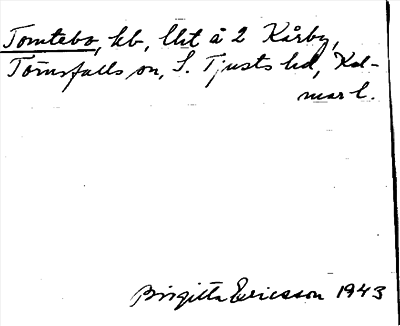 Tomtebo, hb, lht å 2 Kårby,
Törnsfalls sn, S. Tjusts hd, Kal-
mar l.
Birgitta Ericsson 1943